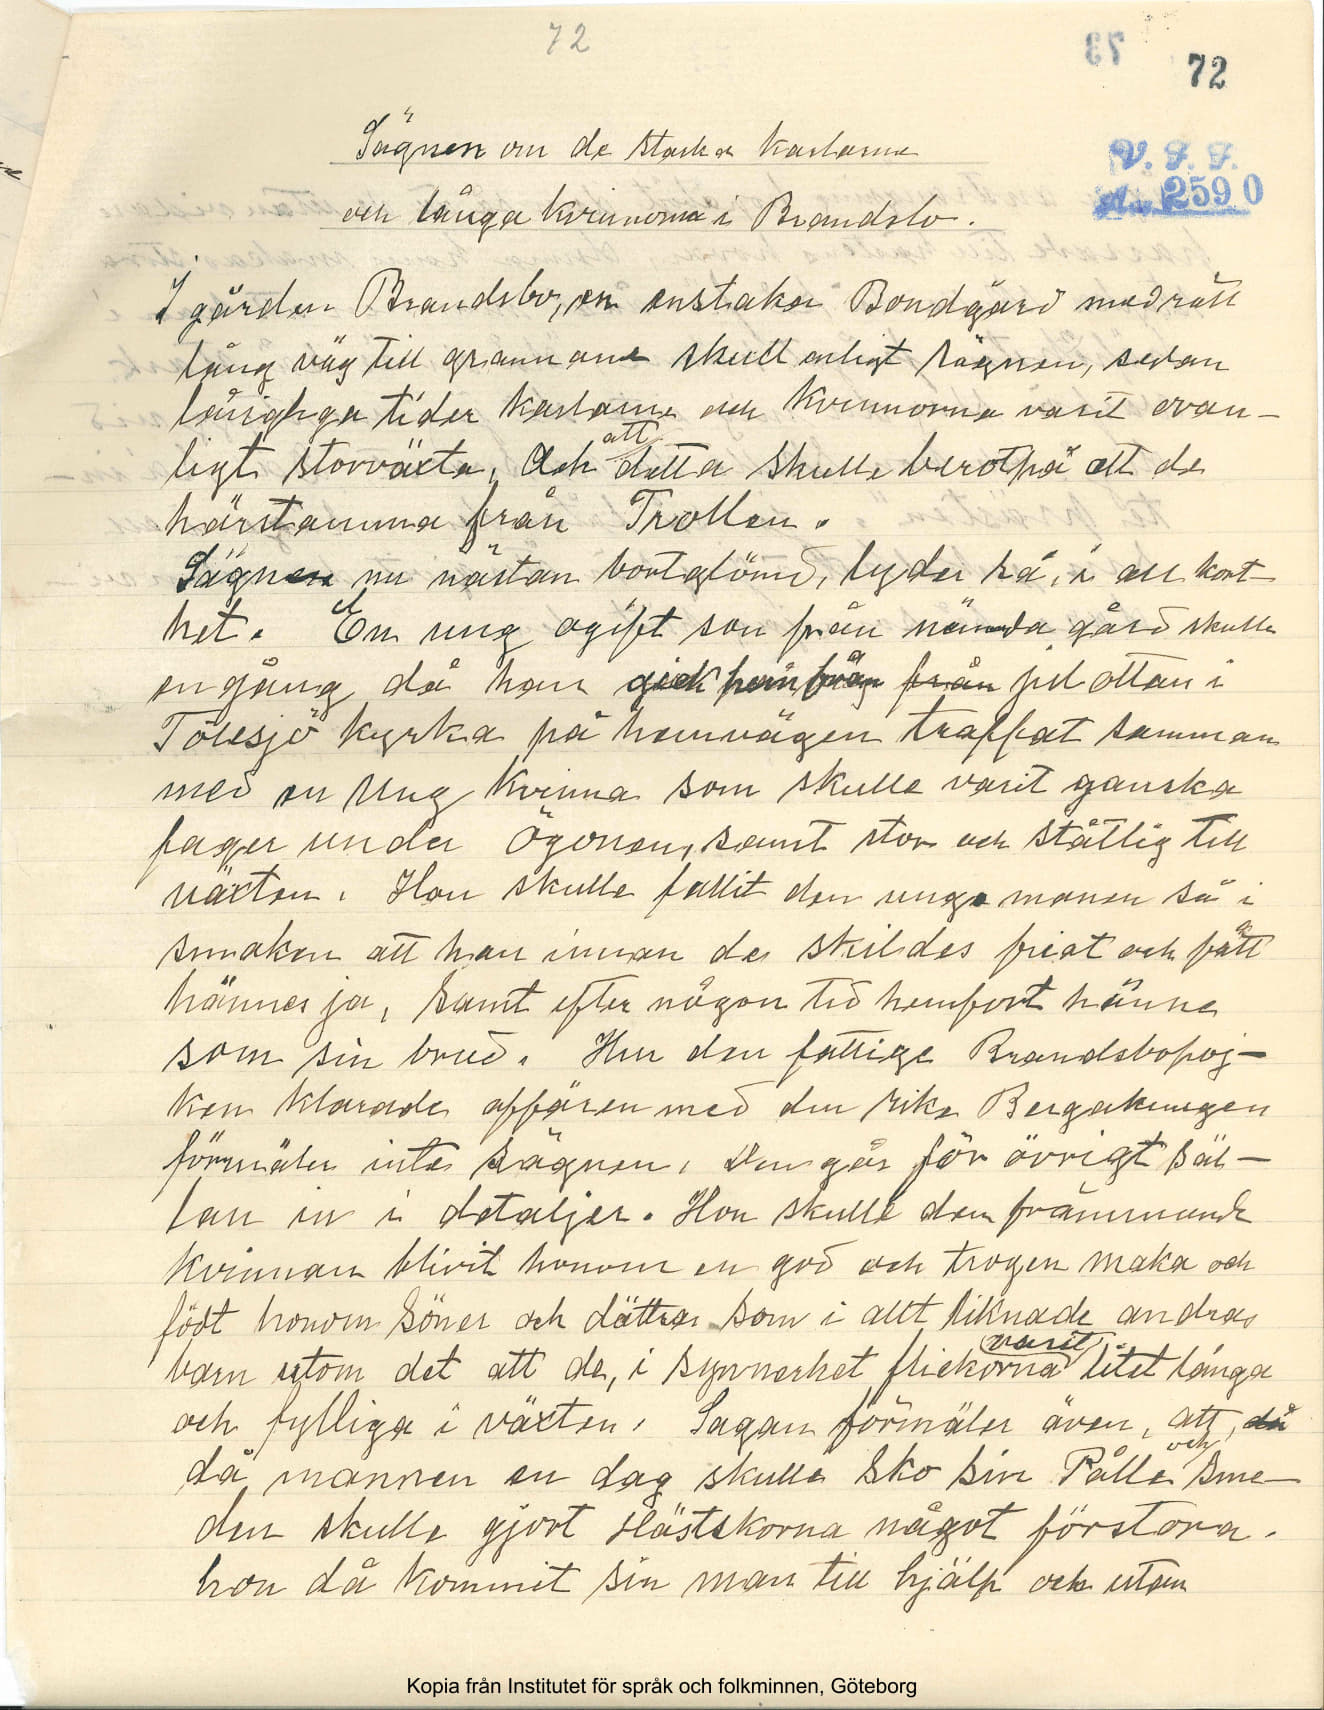 72
73
72
V. F. F.
A. 2590
Sägnen om de starka karlarne
och långa kvinnorna i Brandsbo.
I gården Brandsbo, en enstaka Bondgård med rätt
lång väg till grannane skull enligt sägnen, sedan
långliga tider karlarne och kvinnorna varit ovan-
ligt storväxta, Och att detta skulle berot på att de
härstamma från Trollen.
Sägnen nu nästan bortglömd, lyder så, i all kort-
het. En ung ogift son från nämda gård skulle
en gång då han gick från jul ottan i
Tölesjö kyrka på hemvägen träffat samman
med en ung kvinna som skulle varit ganska
fager under ögonen, samt stor och ståtlig till
växten. Hon skulle fallit den unge manen så i
smaken att han innan de skildes friat och fått
hännes ja, samt efter någon tid hemfört hänne
som sin brud. Hur den fattige Brandsbopoj-
ken klarade affären med den rike Bergakungen
förmäler inte sägnen, den går för övrigt säl-
lan in i detaljer. Hon skulle den främmande
kvinnan blivit honom en god och trogen maka och
födt honom söner och döttrar som i allt liknade andras
barn utom det att de, i synnerhet flickorna varit litet långa
och fylliga i växten. Sagan förmäler även, att, då
då mannen en dag skulle sko sin Pålle och Sme-
den skulle gjort Hästskorna något förstora.
hon då kommit sin man till hjälp och utan
Kopia från Institutet för språk och folkminnen, Göteborg